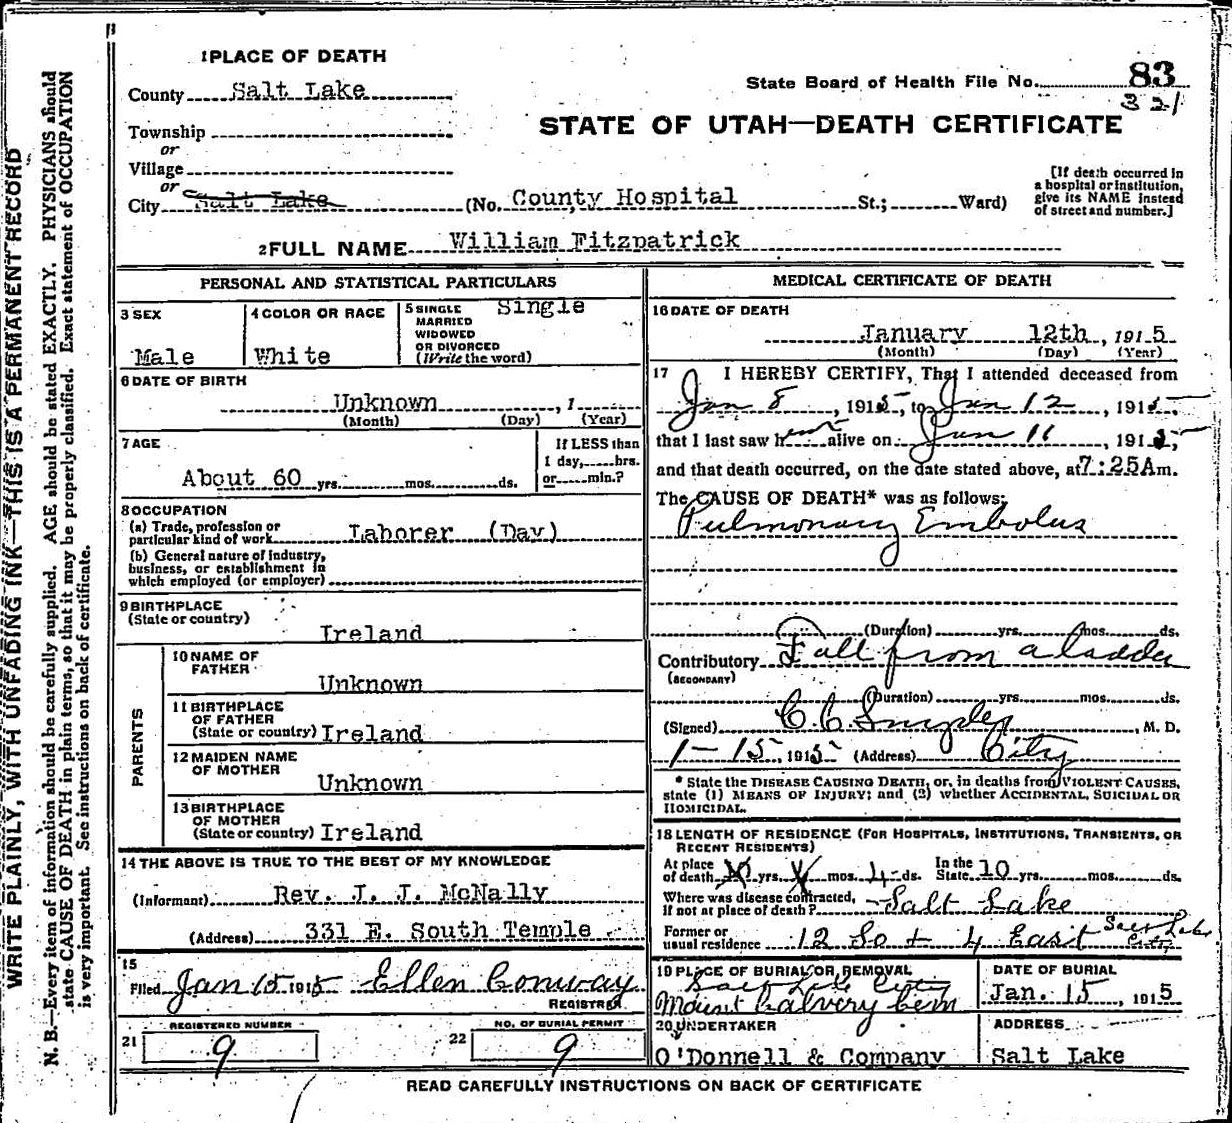 WRITE PLAINLY, WITH UNFADING INK—THIS IS A PERMANENT RECORD
N. B.—Every item of information should be carefully supplied. AGE should be stated EXACTLY. PHYSICIANS should
state CAUSE OF DEATH in plain terms, so that it may be properly classified. Exact statement of OCCUPATION
is very important. See instructions on back of certificate.
1 PLACE OF DEATH
County Salt Lake
State Board of Health File No. 83
321
Township
or
Village
or
City Salt Lake
STATE OF UTAH—DEATH CERTIFICATE
(No. County Hospital St.; Ward)
[If death occurred in
a hospital or institution,
give its NAME instead
of street and number.]
2 FULL NAME William Fitzpatrick
PERSONAL AND STATISTICAL PARTICULARS
3 SEX
Male
4 COLOR OR RACE
White
5 SINGLE
MARRIED
WIDOWED
OR DIVORCED
(Write the word)
Single
6 DATE OF BIRTH
Unknown , 1
(Month) (Day) (Year)
7 AGE
About 60 yrs. mos. ds.
If LESS than
1 day, hrs.
or min.?
8 OCCUPATION
(a) Trade, profession or
particular kind of work Laborer (Day)
(b) General nature of industry,
business, or establishment in
which employed (or employer)
9 BIRTHPLACE
(State or country)
Ireland
PARENTS
10 NAME OF
FATHER
Unknown
11 BIRTHPLACE
OF FATHER
(State or country) Ireland
12 MAIDEN NAME
OF MOTHER
Unknown
13 BIRTHPLACE
OF MOTHER
(State or country) Ireland
14 THE ABOVE IS TRUE TO THE BEST OF MY KNOWLEDGE
(Informant) Rev. J. J. McNally
(Address) 331 E. South Temple
15
Filed Jan 15 1915 Ellen Conway
REGISTRER
21 REGISTERED NUMBER
9
22 NO. OF BURIAL PERMIT
9
MEDICAL CERTIFICATE OF DEATH
16 DATE OF DEATH
January 12th , 1915
(Month) (Day) (Year)
17 I HEREBY CERTIFY, That I attended deceased from
Jan 8 , 1915, to Jan 12 , 1915
that I last saw him alive on Jan 11 , 1915
and that death occurred, on the date stated above, at 7:25Am.
The CAUSE OF DEATH* was as follows:
Pulmonary Embolus
(Duration) yrs. mos. ds.
Contributory Fall from a ladder
(SECONDARY)
(Duration) yrs. mos. ds.
(Signed) C. C. Snyder , M. D.
1-15, 1915 (Address) City
* State the DISEASE CAUSING DEATH, or, in deaths from VIOLENT CAUSES,
state (1) MEANS OF INJURY; and (2) whether ACCIDENTAL, SUICIDAL OR
HOMICIDAL.
18 LENGTH OF RESIDENCE (FOR HOSPITALS, INSTITUTIONS, TRANSIENTS, OR
RECENT RESIDENTS)
At place
of death yrs. mos. 4 ds.
In the
State 10 yrs. mos. ds.
Where was disease contracted,
if not at place of death? Salt Lake
Former or
usual residence 12 So + 4 East Salt Lake
City
19 PLACE OF BURIAL OR REMOVAL
Salt Lake City
Mount Calvery Cem
DATE OF BURIAL
Jan. 15 , 1915
20 UNDERTAKER
O'Donnell & Company
ADDRESS
Salt Lake
READ CAREFULLY INSTRUCTIONS ON BACK OF CERTIFICATE